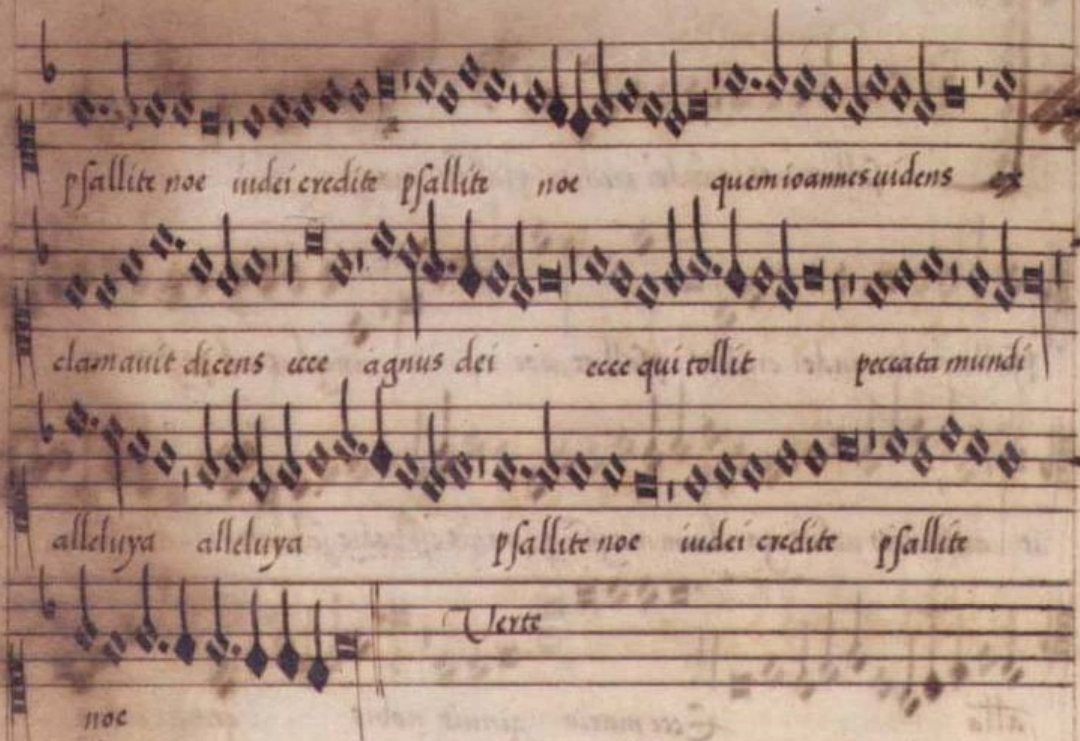 psallite noe iudei credite psallite noe quem ioannes uidens ex
clamauit dicens ecce agnus dei ecce qui tollit peccata mundi
alleluya alleluya psallite noe iudei credite psallite
Verte
noe